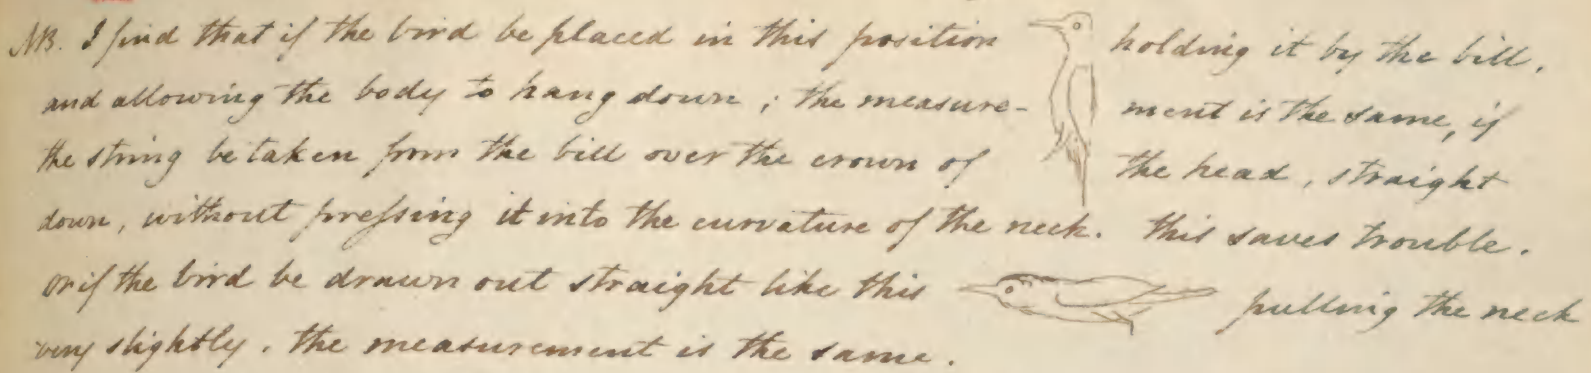 NB. I find that if the bird be placed in this position holding it by the bill,
and allowing the body to hang down; the measure- ment is the same, if
the string be taken from the bill over the crown of the head, straight
down, without preſsing it into the curvature of the neck. this saves trouble.
or if the bird be drawn out straight like this pulling the neck
very slightly. the measurement is the same.